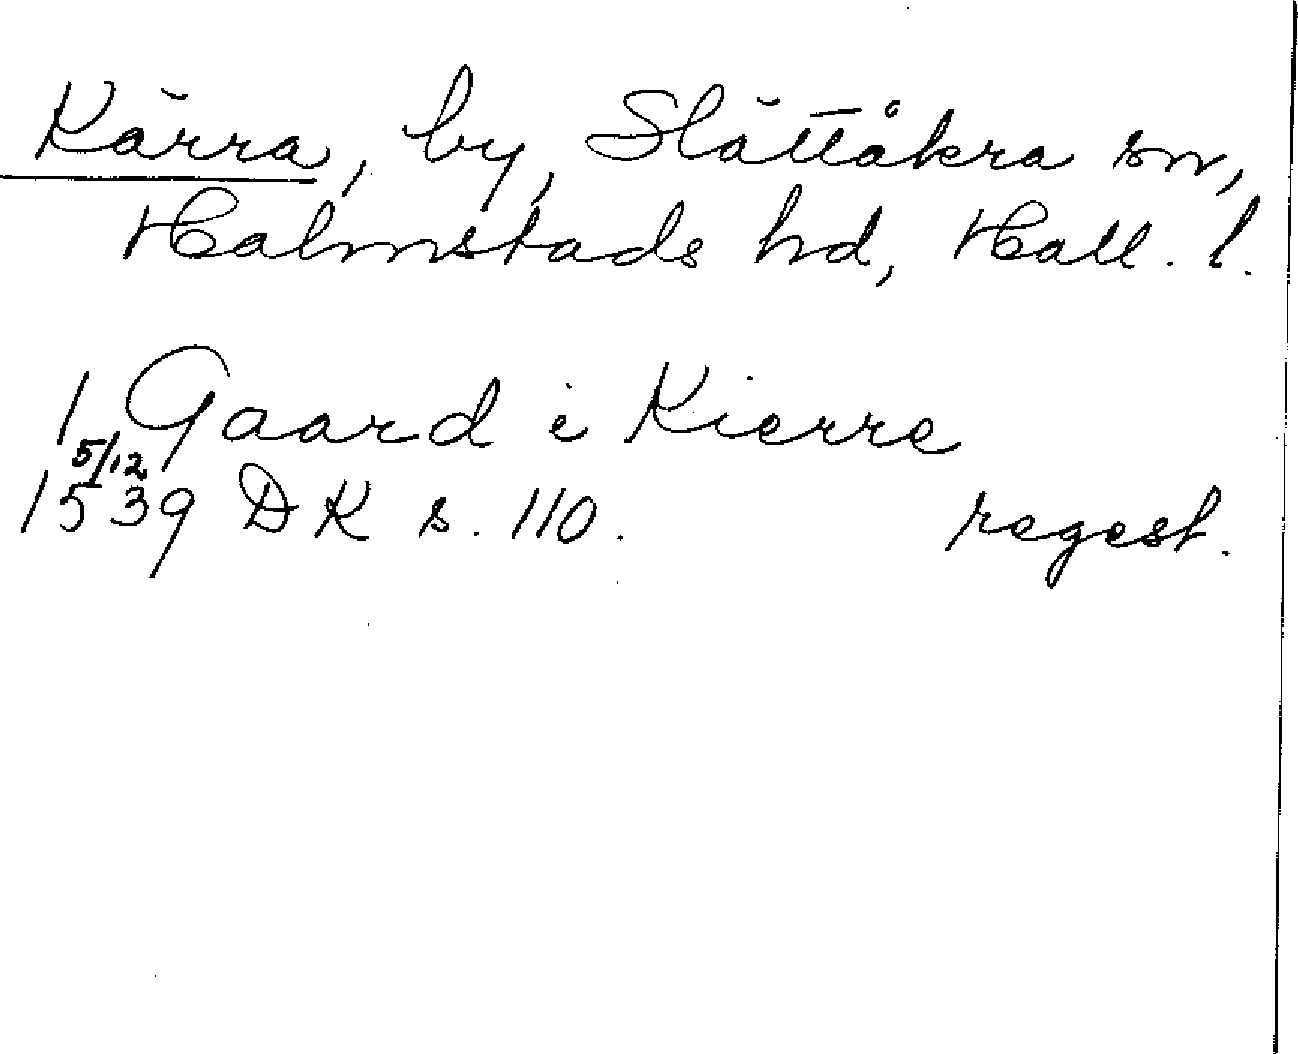 Kärra, by, Slättåkra sn,
Halmstads hd, Hall. l.
1 Gaard i Kierre
5/12
1539 DK s. 110. regest.